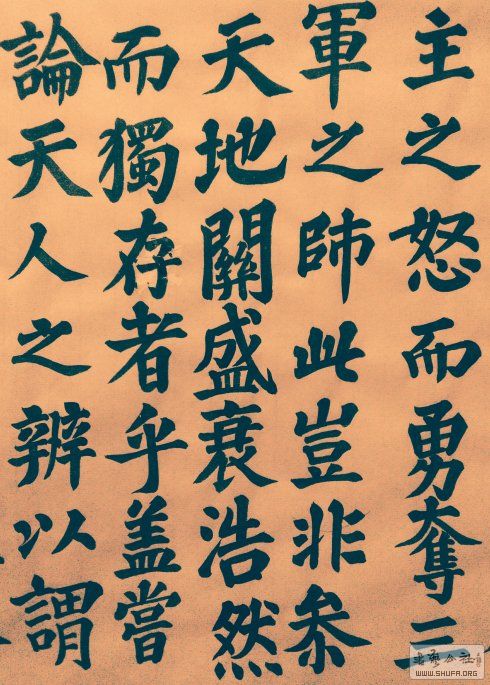 主之怒而勇奪三
軍之師此豈非叅
天地關盛衰浩然
而獨存者乎盖嘗
論天人之辨以謂
WWW.SHUFA.ORG